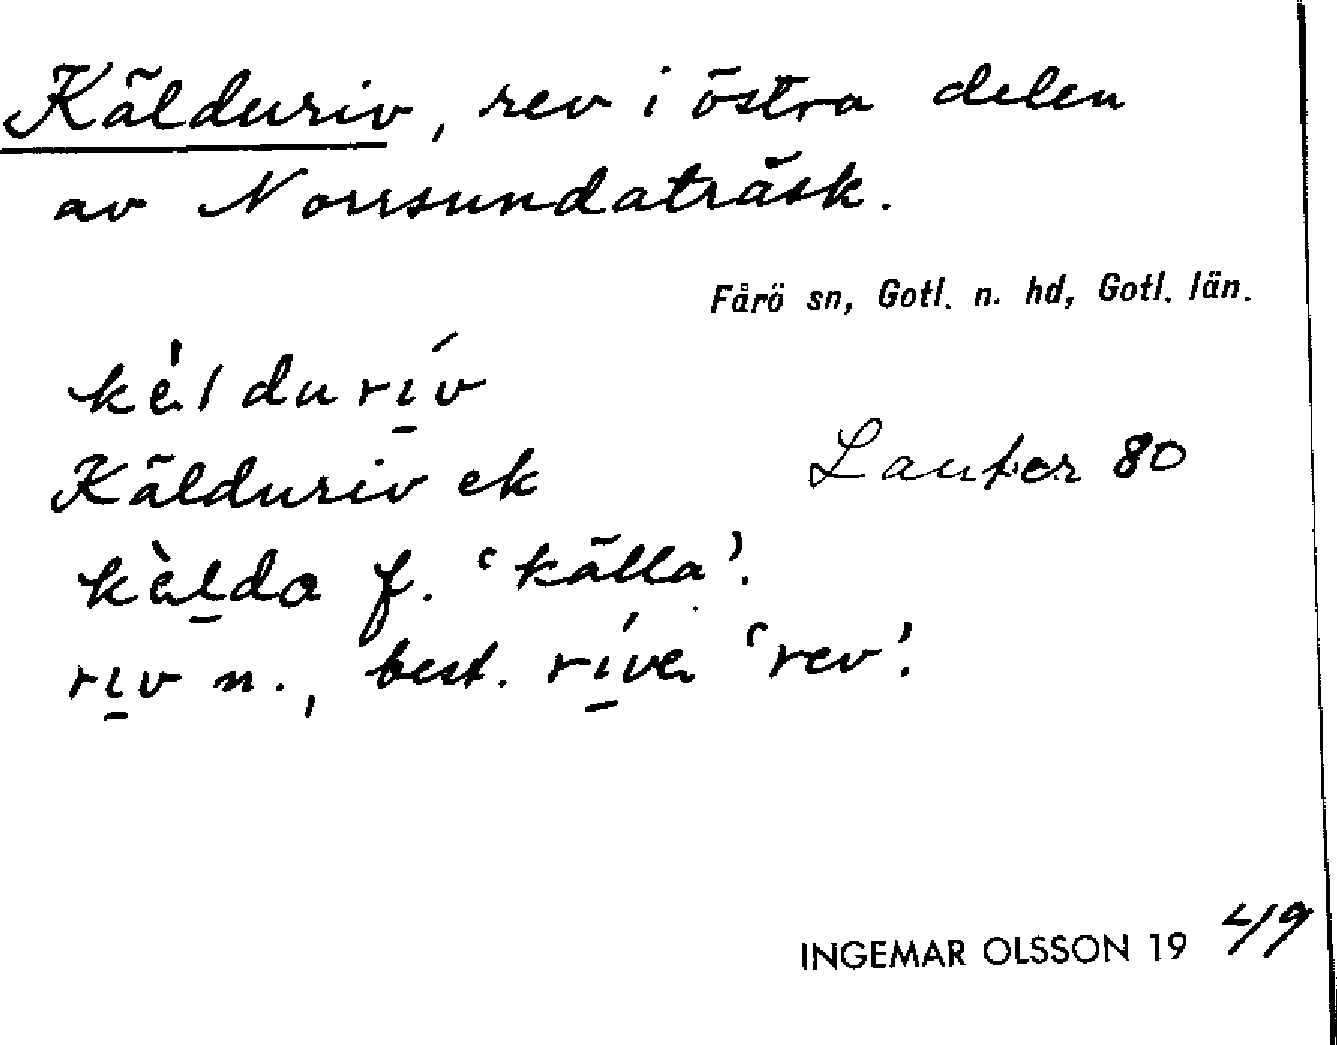 Källduriv, rev i östra delen
av Norrsundaträsk.
Fårö sn, Gotl. n. hd, Gotl. län.
kèldurı̱́v
Källduriv ek Lauter 80
kälda f. ‘källa’.
rı̱v n., best. rı̱́ve ‘rev’.
INGEMAR OLSSON 19 49